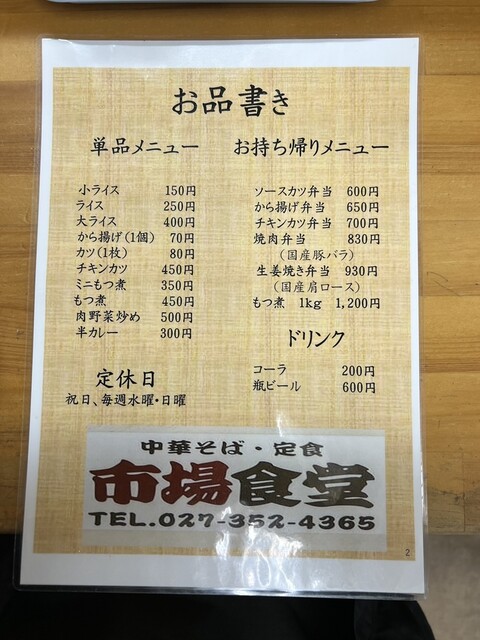 お品書き
単品メニュー
小ライス 150円
ライス 250円
大ライス 400円
から揚げ(1個) 70円
カツ(1枚) 80円
チキンカツ 450円
ミニもつ煮 350円
もつ煮 450円
肉野菜炒め 500円
半カレー 300円
定休日
祝日、毎週水曜・日曜
お持ち帰りメニュー
ソースカツ弁当 600円
から揚げ弁当 650円
チキンカツ弁当 700円
焼肉弁当 830円
(国産豚バラ)
生姜焼き弁当 930円
(国産肩ロース)
もつ煮 1kg 1,200円
ドリンク
コーラ 200円
瓶ビール 600円
中華そば・定食
市場食堂
TEL.027-352-4365
2